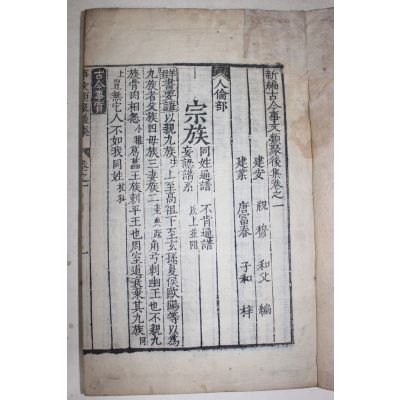 新編古今事文類聚後集卷之一
建安 祝穆 和父 編
建業 唐富春 子和 梓
人倫部
宗族 同姓通譜 不肯通譜
妄認譜系 以上並附
群書要語 以親九族 上至高祖下至玄孫夏侯歐陽等以為
九族者父族四母族三妻族二 堯典疏 角弓刺幽王也不親九
族骨肉相怨 小雅 葛藟王族刺平王也周室道衰棄其九族 同
上 豈無它人不如我同姓 杕杜
古今事實
事文類聚後集 卷之一 一